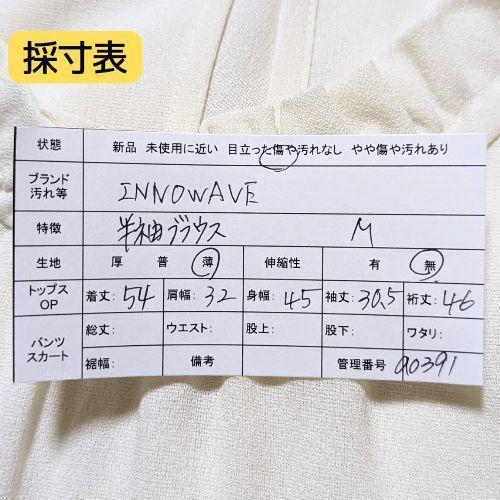 採寸表
状態 新品 未使用に近い 目立った傷や汚れなし やや傷や汚れあり
ブランド
汚れ等 INNOWAVE
特徴 半袖ブラウス M
生地 厚 普 薄 伸縮性 有 無
トップス
OP 着丈:54 肩幅:32 身幅:45 袖丈:30.5 裄丈:46
パンツ
スカート 総丈: ウエスト: 股上: 股下: ワタリ:
裾幅: 備考 管理番号 a0391